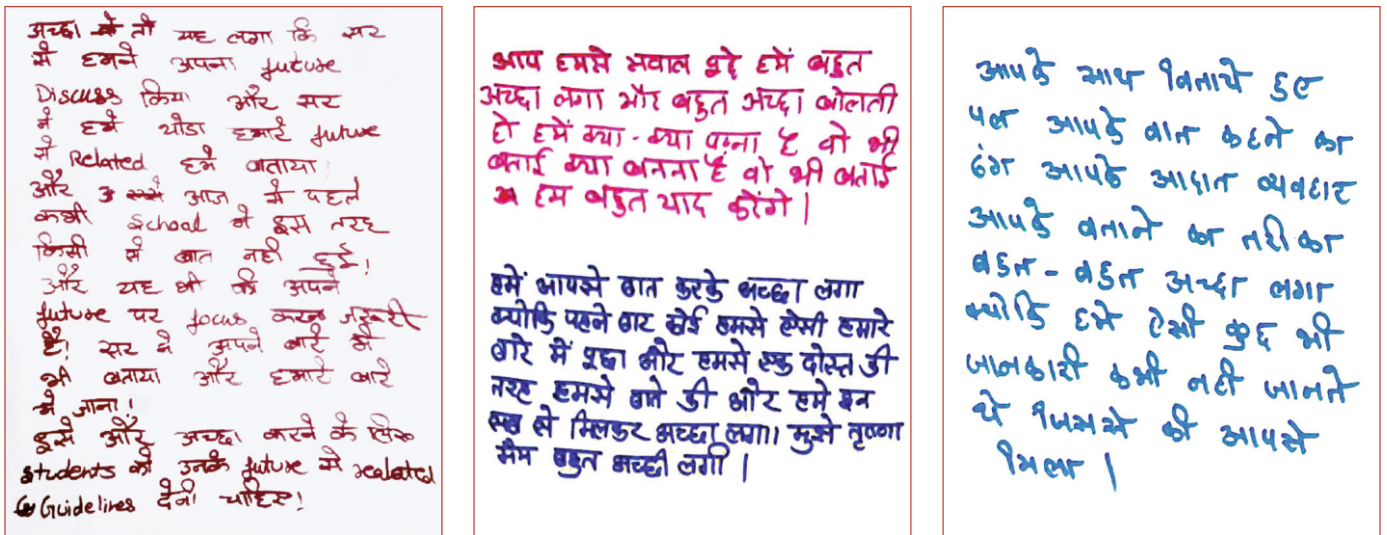 अच्छा तो यह लगा कि सर
से हमने अपना future
Discuss किया और सर
ने हमे थोडा हमारे future
से Related हमे बताया!
और आज से पहले
कभी School मे इस तरह
किसी से बात नही हुई!
और यह भी की अपने
future पर focus करना जरूरी
है! सर ने अपने बारे मे
भी बताया और हमारे बारे
मे जाना!
इसे और अच्छा करने के लिए
students को उनके future से realated
Guidelines देनी चाहिए!
आप हमसे सवाल पूछे हमें बहुत
अच्छा लगा और बहुत अच्छा बोलती
हो हमें क्या-क्या पढ़ना है वो भी
बताई क्या बनना है वो भी बताई
हम बहुत याद करेंगे।
हमें आपसे बात करके अच्छा लगा
क्योकि पहले बार कोई हमसे ऐसी हमारे
बारे में पूछा और हमसे एक दोस्त की
तरह हमसे बाते की और हमे इन
सब से मिलकर अच्छा लगा। मुझे तृष्णा
मैम बहुत अच्छी लगी।
आपके साथ बिताये हुए
पल आपके बात कहने का
ढंग आपके आदात व्यवहार
आपके बताने का तरीका
बहुत-बहुत अच्छा लगा
क्योकि हमे ऐसी कुछ भी
जानकारी कभी नही जानते
थे जिससे की आपसे
मिला।